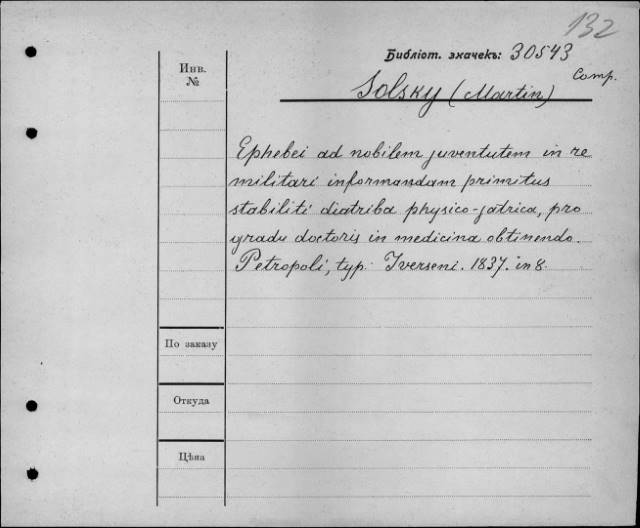 132
Библіот. значекъ: 30543
Comp.
Solsky (Martin)
Инв.
№
Ephebei ad nobilem juventutem in re
militari informandam primitus
stabiliti diatriba physico-jatrica, pro
gradu doctoris in medicina obtinendo.
Petropoli, typ. Iverseni. 1837. in 8.
По заказу
Откуда
Цѣна